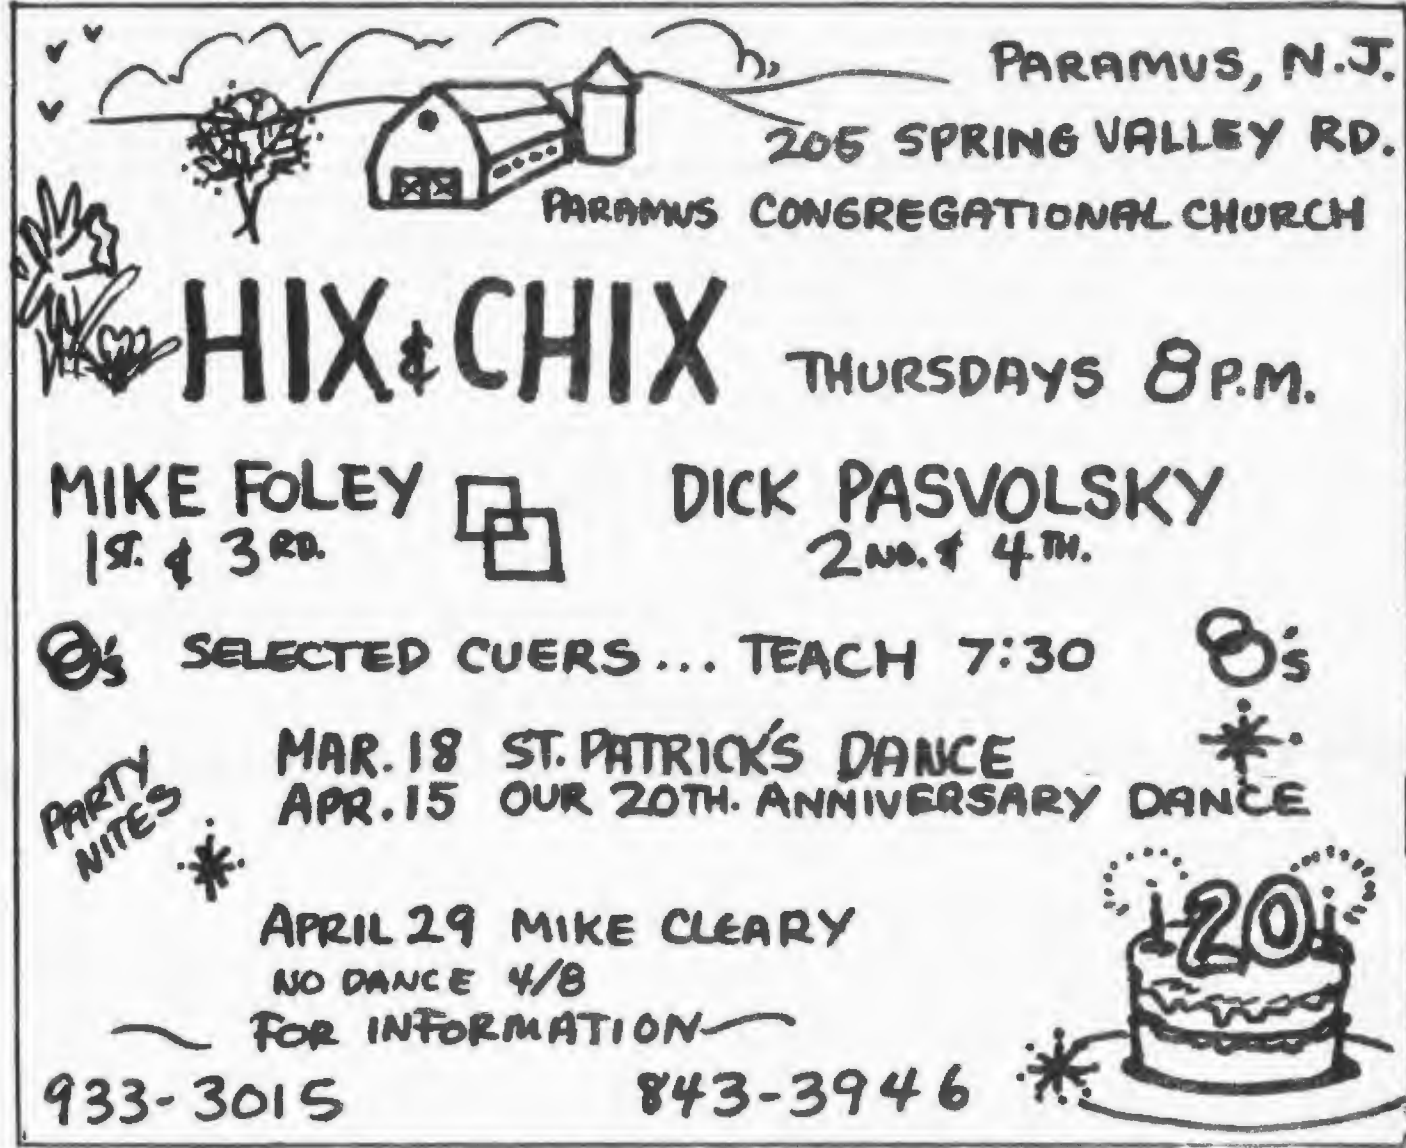 PARAMUS, N.J.
205 SPRING VALLEY RD.
PARAMUS CONGREGATIONAL CHURCH
HIX & CHIX THURSDAYS 8 P.M.
MIKE FOLEY DICK PASVOLSKY
1ST. & 3RD. 2ND. & 4TH.
's SELECTED CUERS... TEACH 7:30 's
PARTY NITES
MAR. 18 ST. PATRICK'S DANCE
APR. 15 OUR 20TH. ANNIVERSARY DANCE
20
APRIL 29 MIKE CLEARY
NO DANCE 4/8
FOR INFORMATION
933-3015 843-3946